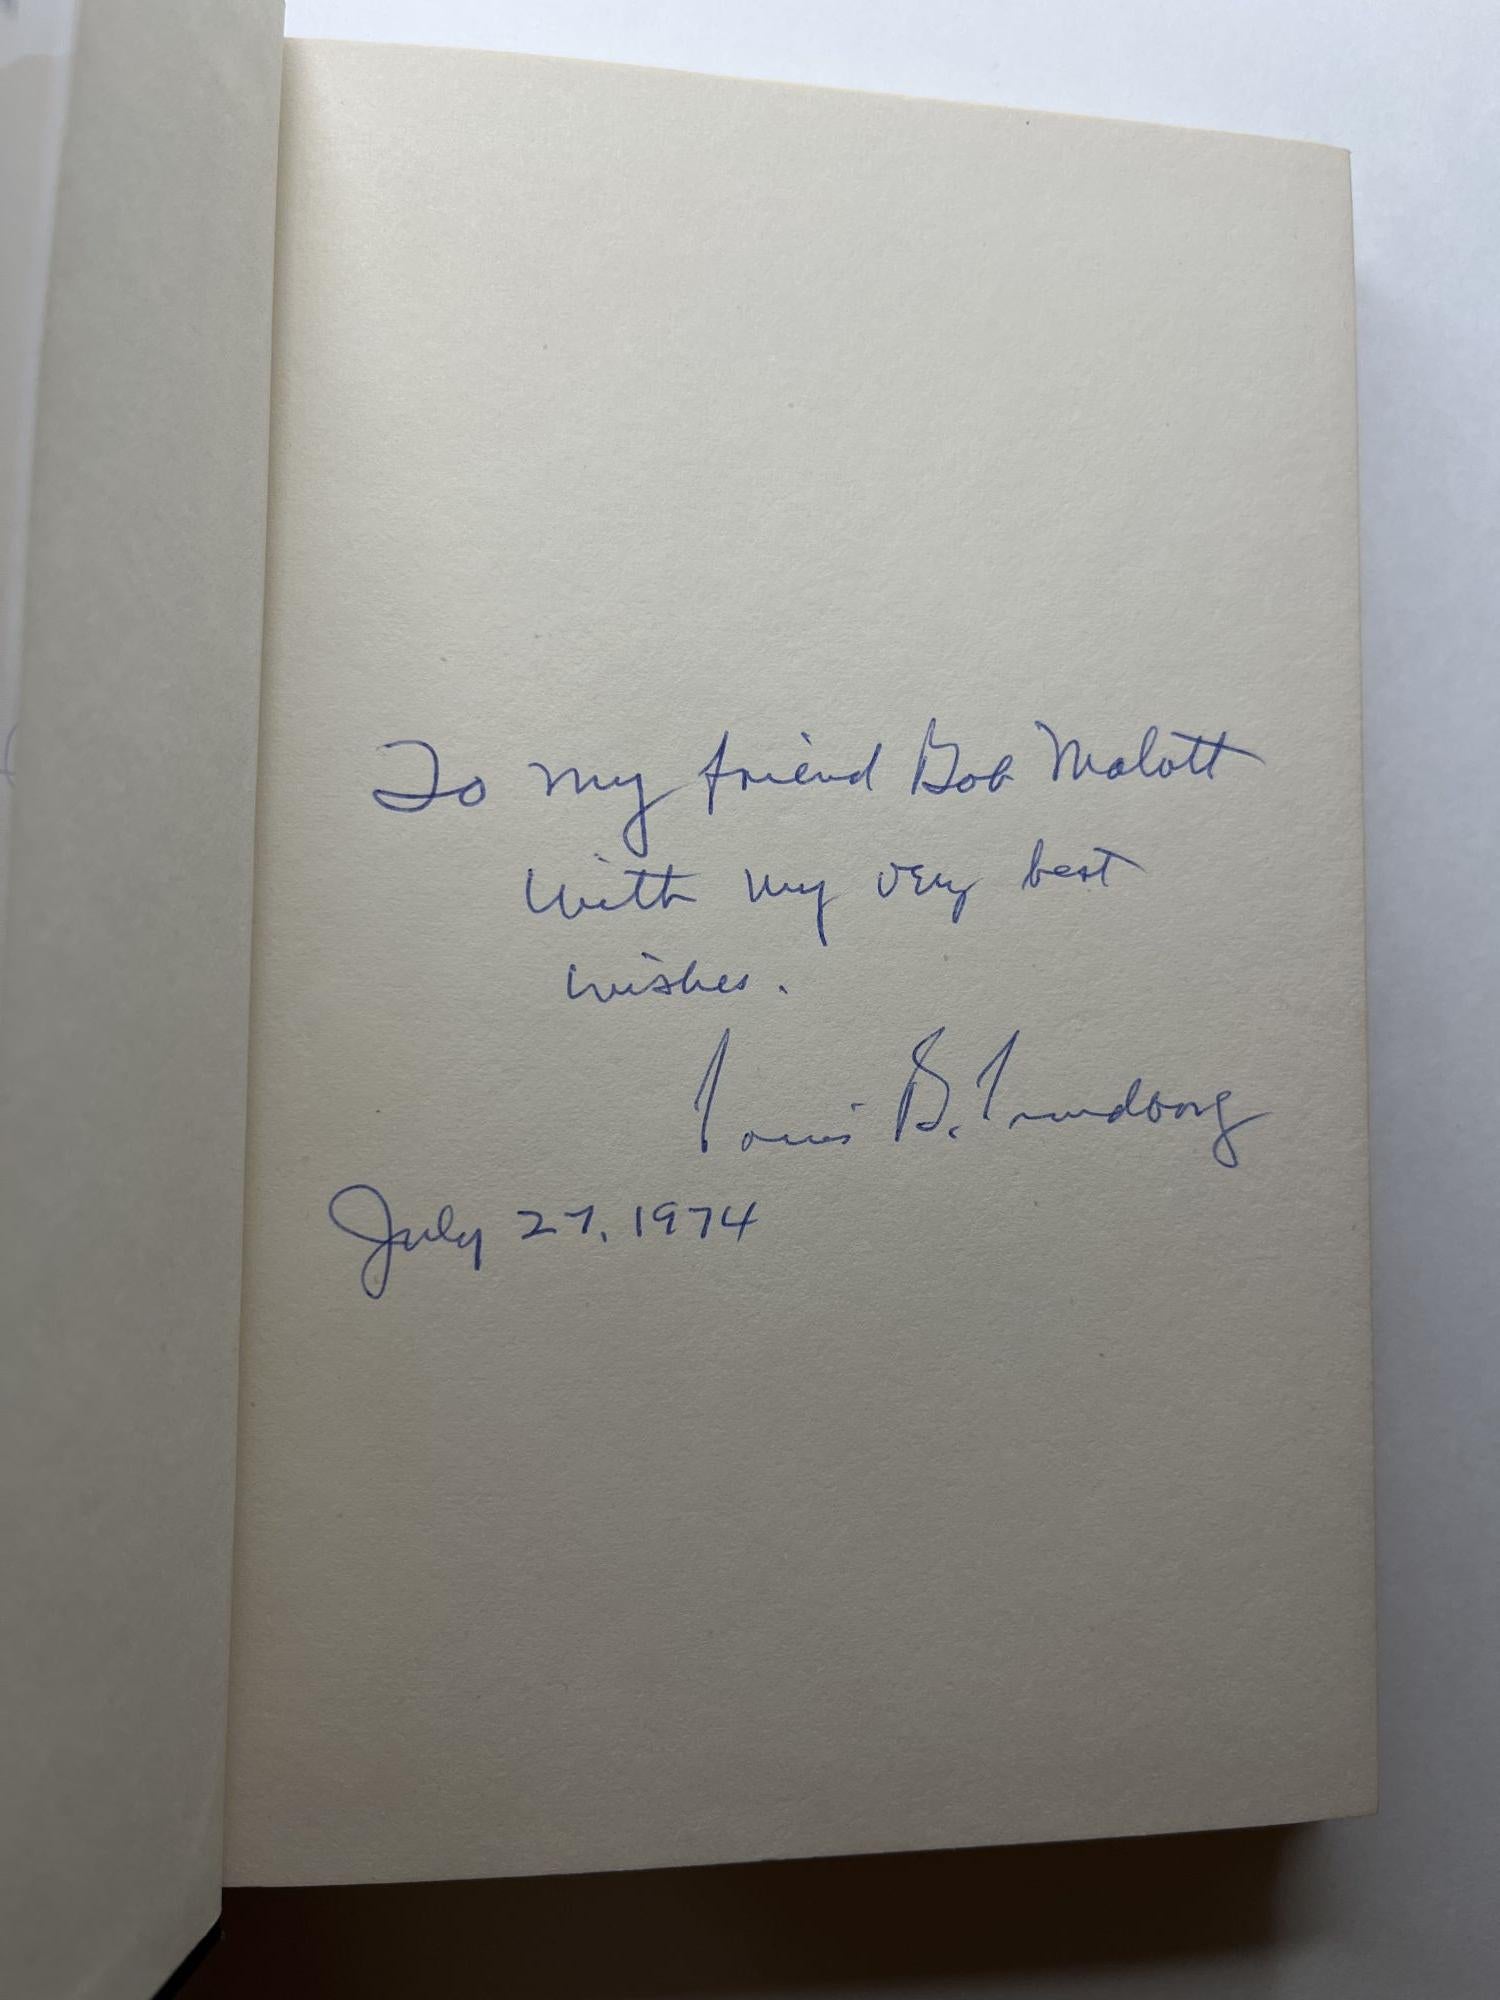 To my friend Bob Malott
with my very best
wishes.
Louis B. Lundborg
July 27, 1974